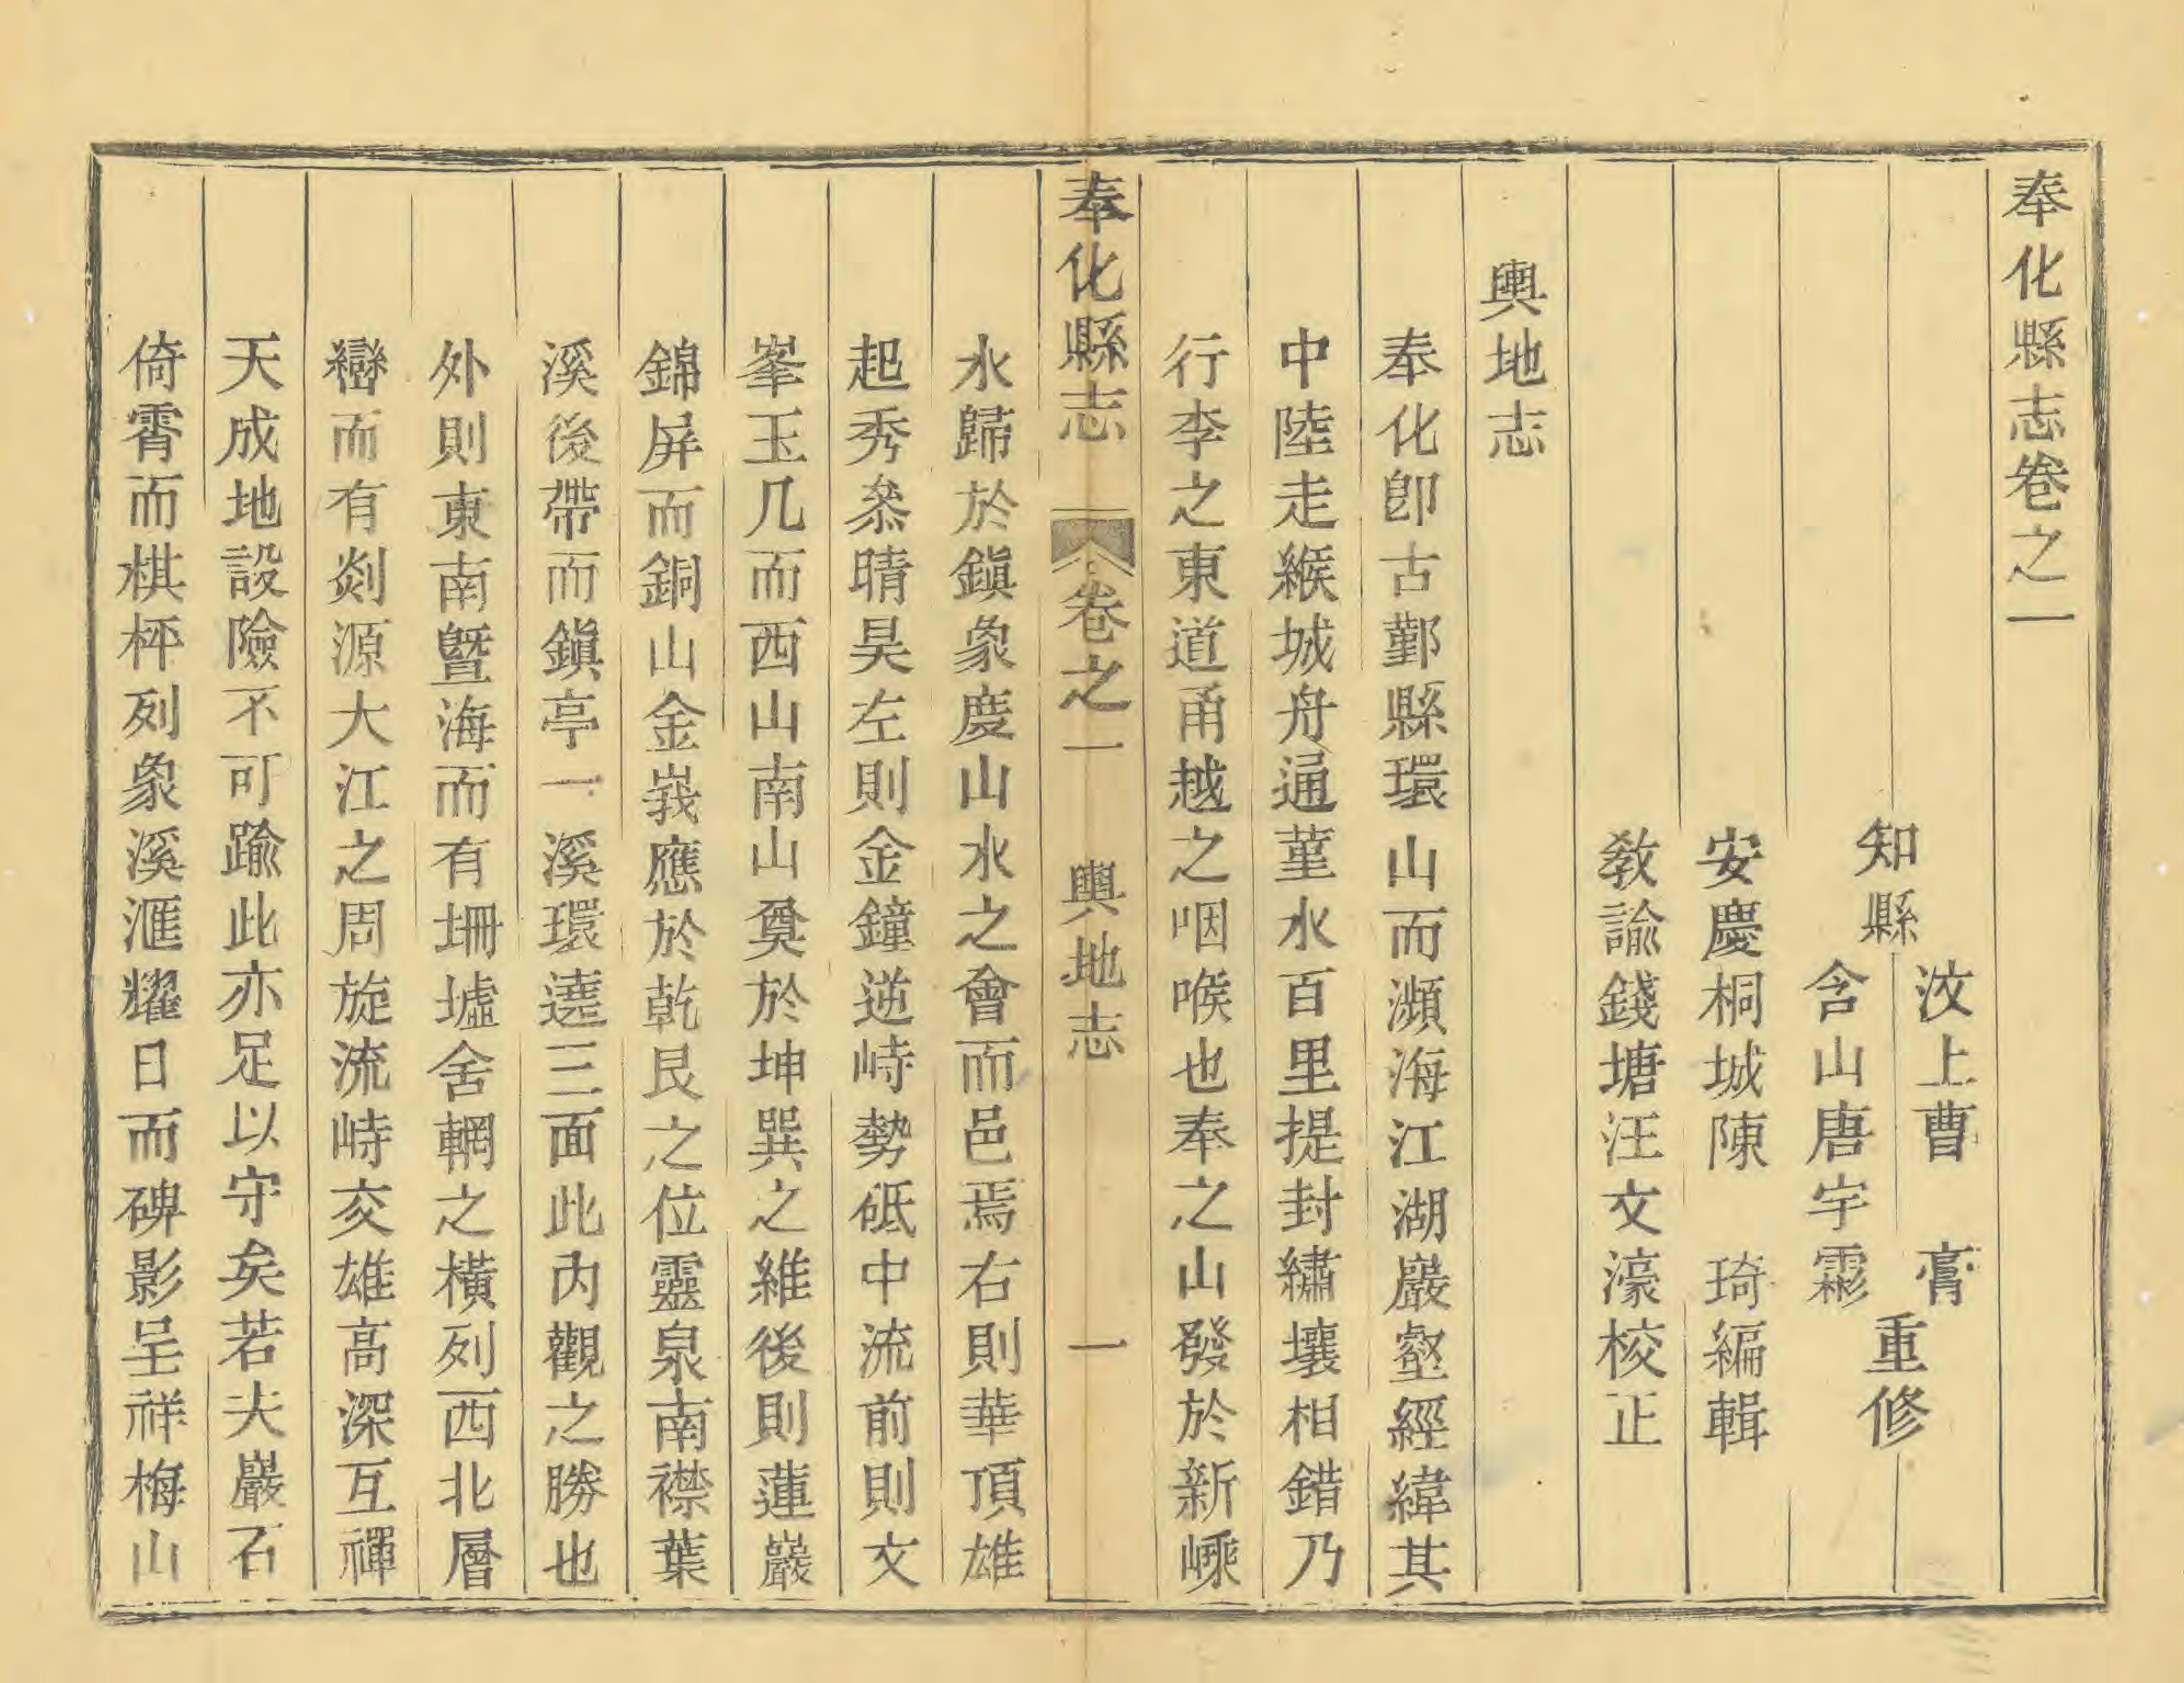 奉化縣志卷之一
知縣
汶上曹　膏
含山唐宇霦
重修
安慶桐城陳　琦編輯
教諭錢塘汪文濠校正
輿地志
奉化卽古鄞縣環山而瀕海江湖巖壑經緯其
中陸走緱城舟通菫水百里提封繡壤相錯乃
行李之東道甬越之咽喉也奉之山發於新嵊
奉化縣志　卷之一　輿地志　一
水歸於鎭象慶山水之會而邑焉右則華頂雄
起秀叅晴昊左則金鐘逆峙勢砥中流前則文
峯玉几而西山南山奠於坤巽之維後則蓮巖
錦屏而銅山金峩應於乾艮之位靈泉南襟葉
溪後帶而鎭亭一溪環遶三面此內觀之勝也
外則東南曁海而有坍墟舍輞之橫列西北層
巒而有剡源大江之周旋流峙交雄高深互禪
天成地設險不可踰此亦足以守矣若夫巖石
倚霄而棋枰列象溪滙耀日而碑影呈祥梅山